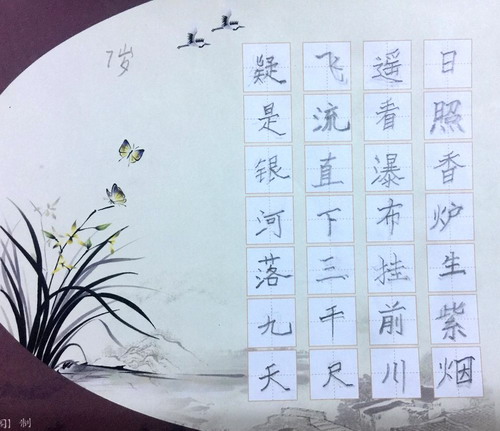 日照香炉生紫烟
遥看瀑布挂前川
飞流直下三千尺
疑是银河落九天
7岁
制